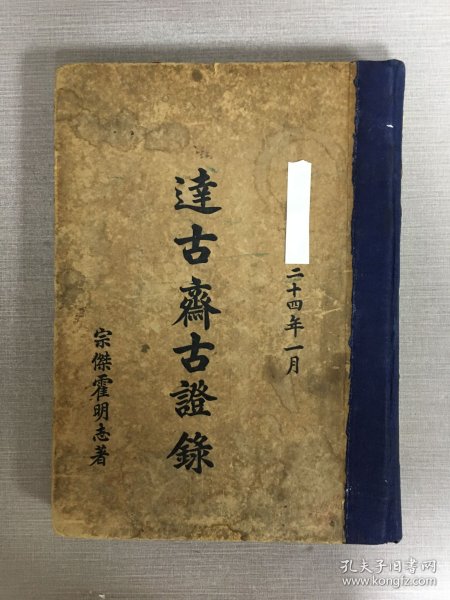 二十四年一月
達古齋古證錄
宗傑霍明志著
孔夫子旧书网
www.kongfz.com